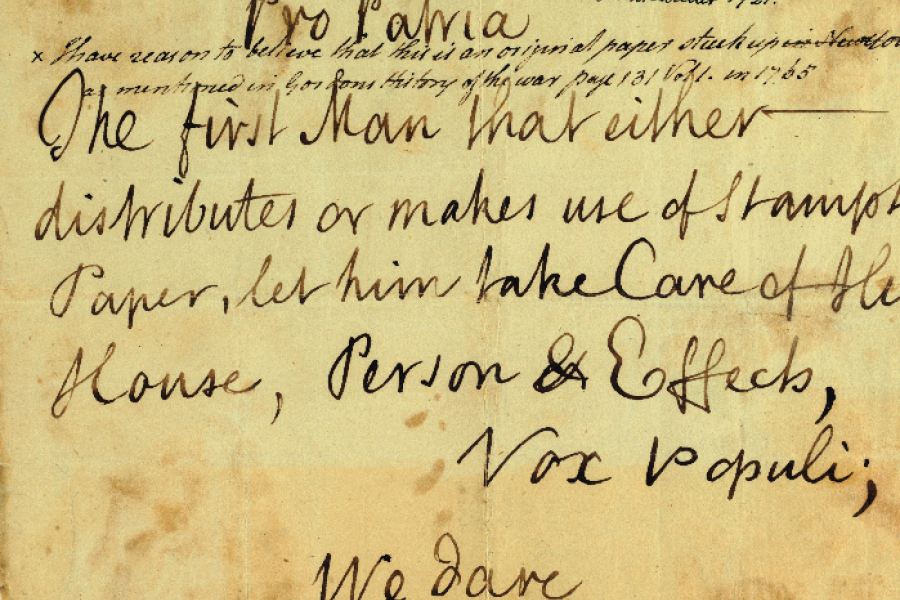 Pro Patria
x I have reason to believe that this is an original paper stuck up in
as mentioned in Gordons History of the war page 131 Vol 1. in 1765
The first Man that either
distributes or makes use of Stampt
Paper, let him take Care of
House, Person & Effects,
Vox Populi;
We dare